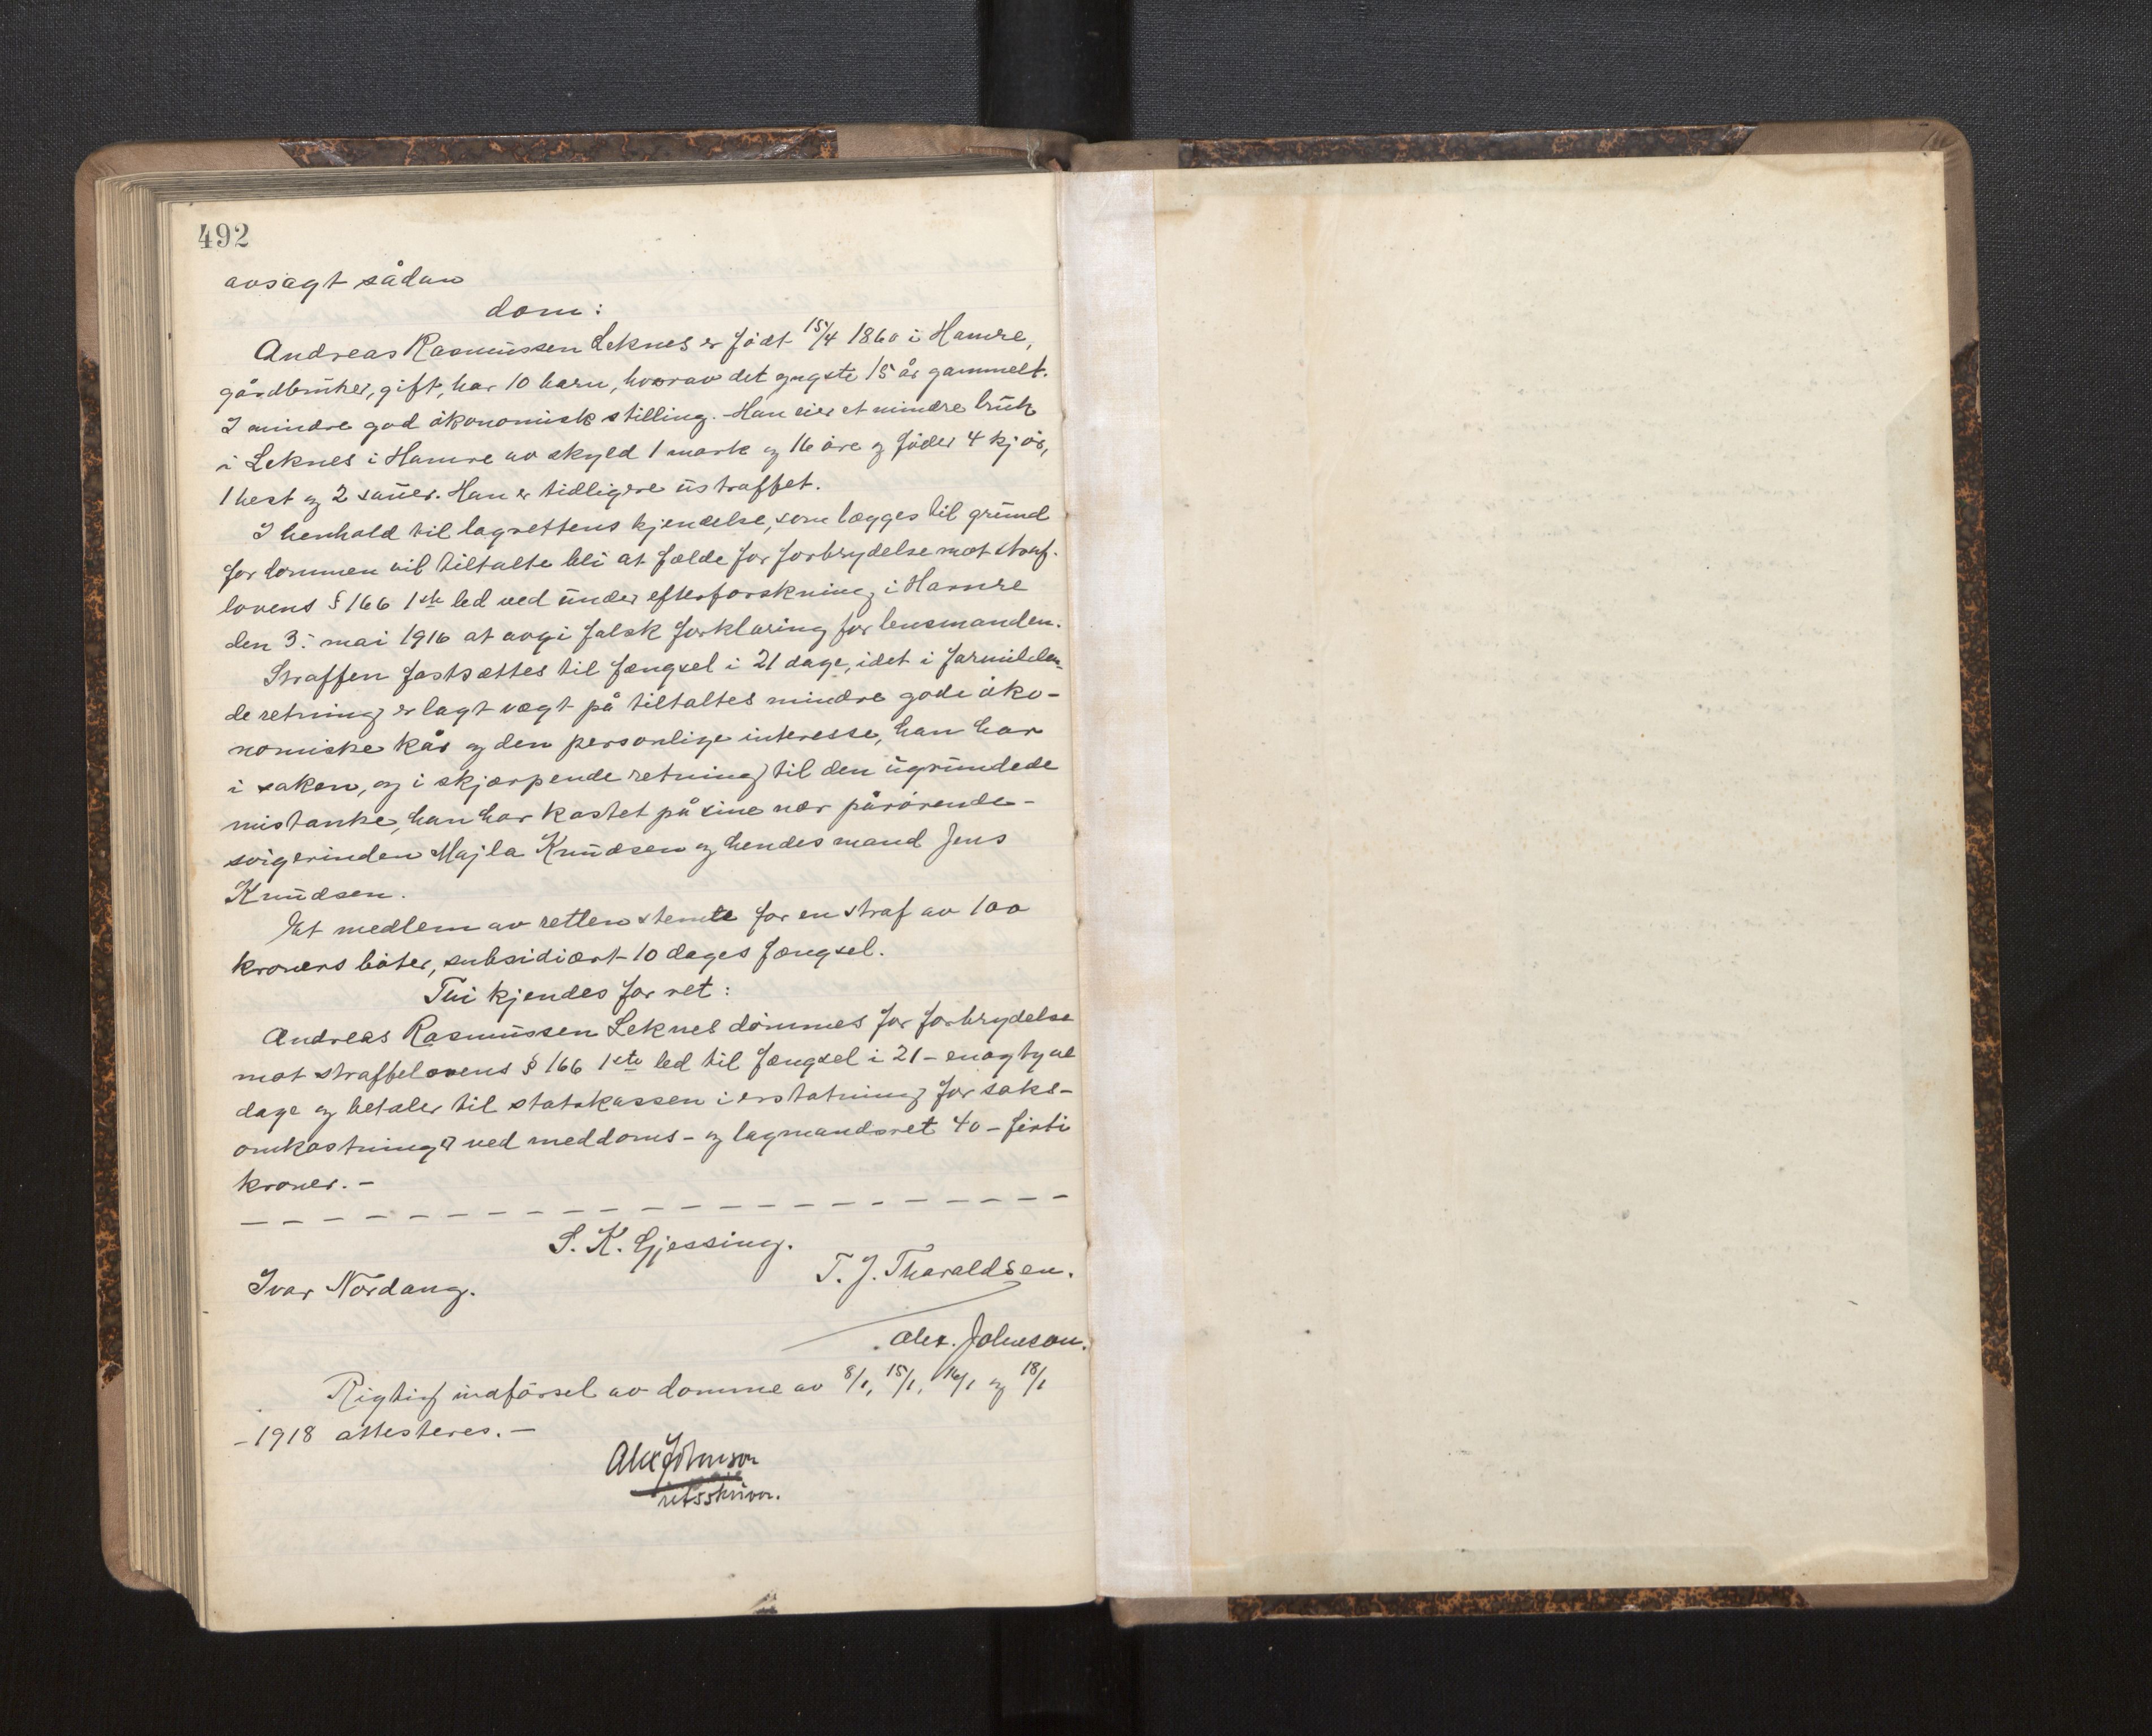 492
avsagt sådan
dom:
Andreas Rasmussen Leknes er født 15/4 1860 i Hamre,
gårdbruker, gift, har 10 barn, hvorav det yngste 15 år gammelt.
I mindre god økonomisk stilling. Han eier et mindre bruk
i Leknes i Hamre av skyld 1 mark og 16 øre og føder 4 kjør,
1 hest og 2 sauer. Han er tidligere ustraffet.
I henhold til lagrettens kjendelse, som lægges til grund
for dommen vil tiltalte bli at fælde for forbrydelse mot straf-
lovens § 166 1ste led ved under efterforskning i Hamre
den 3. mai 1916 at avgi falsk forklaring for lensmanden.
Straffen fastsættes til fængsel i 21 dage, idet i formilden-
de retning er lagt vægt på tiltaltes mindre gode øko-
nomiske kår og den personlige interesse, han har
i saken, og i skjærpende retning til den ugrundede
mistanke, han har kastet på sine nær pårørende -
svigerinden Majla Knudsen og hendes mand Jens
Knudsen.
Et medlem av retten stemte for en straf av 100
kroners bøter, subsidiært 10 dages fængsel.
Thi kjendes for ret:
Andreas Rasmussen Leknes dømmes for forbrydelse
mot straffelovens § 166 1ste led til fængsel i 21 - enogtyve
dage og betaler til statskassen i erstatning for saks-
omkostninger ved meddoms- og lagmandsret 40 - firti
kroner. -
S. K. Gjessing.
Ivar Nordang. T. J. Tharaldsen.
Alex. Johnson.
Rigtig indførsel av domme av 8/1, 15/1, 16/1 og 18/1
- 1918 attesteres. -
Alex Johnson
retsskriver.